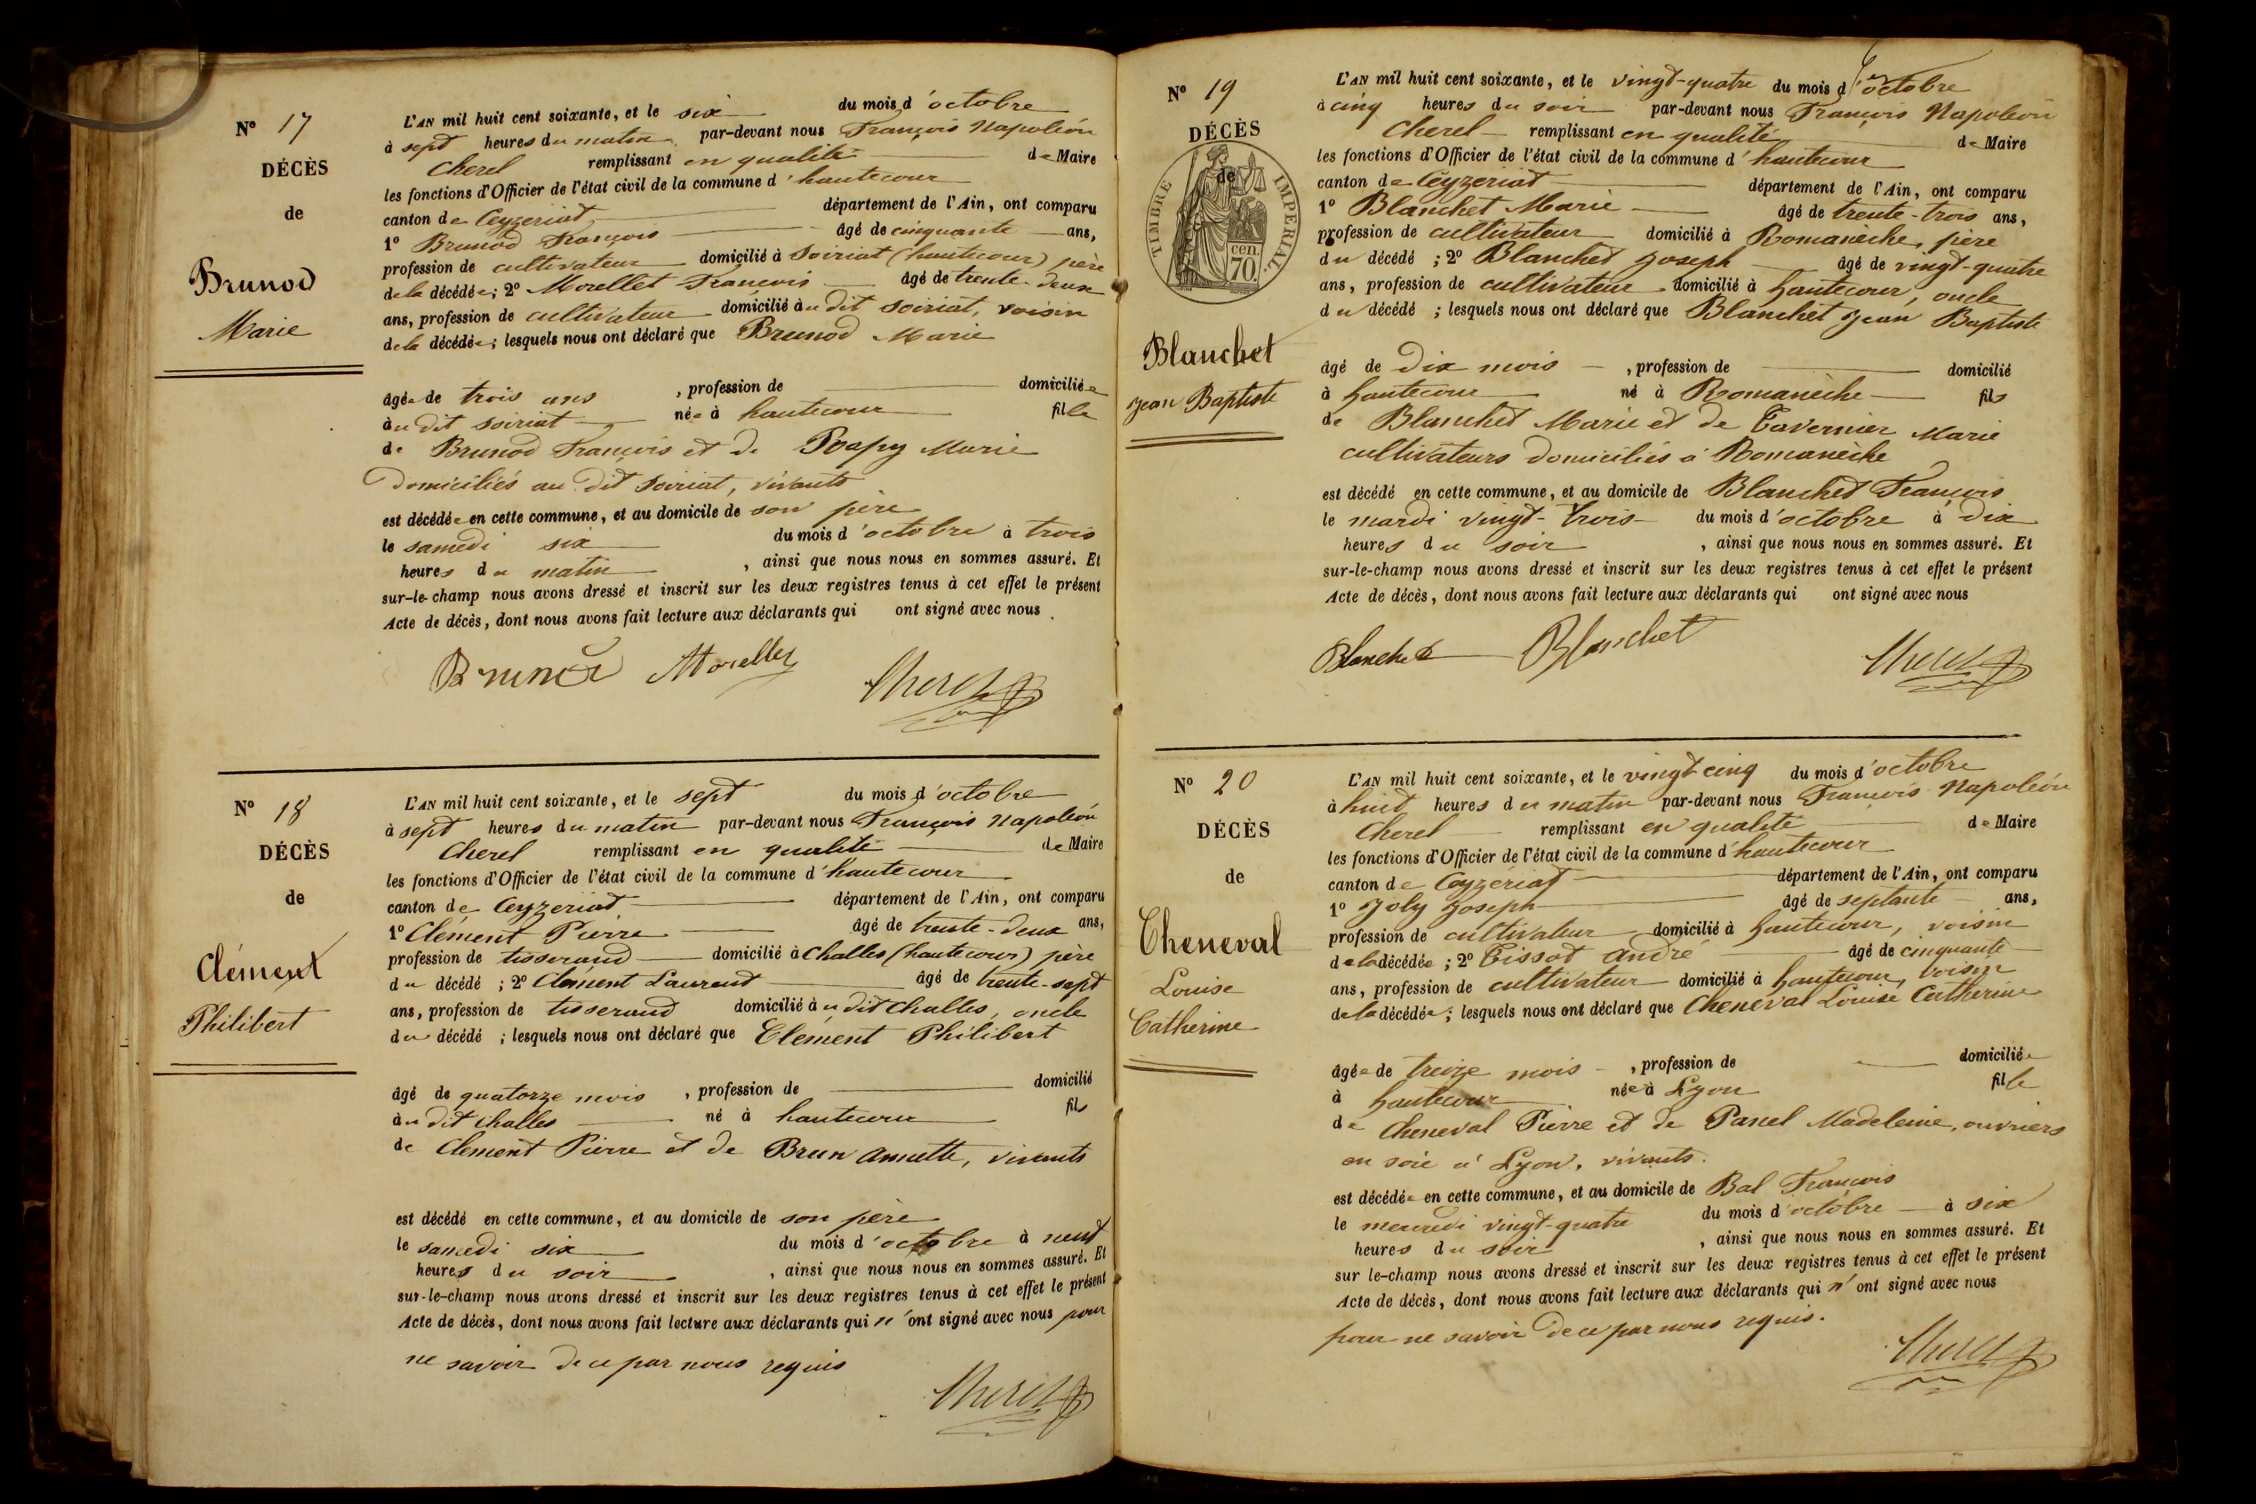 N° 17
DÉCÈS
de
Brunod
Marie
L'AN mil huit cent soixante, et le six du mois d'octobre
à sept heures du matin par-devant nous François Napoléon
Cherel remplissant en qualité de Maire
les fonctions d'Officier de l'état civil de la commune d'hautecour
canton de Ceyzeriat département de l'Ain, ont comparu
1° Brunod François âgé de cinquante ans,
profession de cultivateur domicilié à Soiriat (hautecour) père
de la décédée; 2° Morellet François âgé de trente-deux
ans, profession de cultivateur domicilié au dit Soiriat, voisin
de la décédée; lesquels nous ont déclaré que Brunod Marie
âgée de trois ans, profession de domiciliée
au dit Soiriat née à hautecour fille
de Brunod François et de Poapy Marie
domiciliés au dit Soiriat, vivants
est décédée en cette commune, et au domicile de son père
le samedi six du mois d'octobre à trois
heures du matin, ainsi que nous nous en sommes assuré. Et
sur-le-champ nous avons dressé et inscrit sur les deux registres tenus à cet effet le présent
Acte de décès, dont nous avons fait lecture aux déclarants qui ont signé avec nous.
Brunod Morellet Cherel
N° 18
DÉCÈS
de
Clément
Philibert
L'AN mil huit cent soixante, et le sept du mois d'octobre
à sept heures du matin par-devant nous François Napoléon
Cherel remplissant en qualité de Maire
les fonctions d'Officier de l'état civil de la commune d'hautecour
canton de Ceyzeriat département de l'Ain, ont comparu
1° Clément Pierre âgé de trente-deux ans,
profession de tisserand domicilié à Challes (hautecour) père
du décédé; 2° Clément Laurent âgé de trente-sept
ans, profession de tisserand domicilié au dit Challes, oncle
du décédé; lesquels nous ont déclaré que Clément Philibert
âgé de quatorze mois, profession de domicilié
au dit Challes né à hautecour fils
de Clément Pierre et de Brun Annette, vivants
est décédé en cette commune, et au domicile de son père
le samedi six du mois d'octobre à neuf
heures du soir, ainsi que nous nous en sommes assuré. Et
sur-le-champ nous avons dressé et inscrit sur les deux registres tenus à cet effet le présent
Acte de décès, dont nous avons fait lecture aux déclarants qui n'ont signé avec nous pour
ne savoir de ce par nous requis
Cherel
N° 19
DÉCÈS
de
TIMBRE IMPERIAL.
70 cen.
Blanchet
Jean Baptiste
L'AN mil huit cent soixante, et le vingt-quatre du mois d'octobre
à cinq heures du soir par-devant nous François Napoléon
Cherel remplissant en qualité de Maire
les fonctions d'Officier de l'état civil de la commune d'hautecour
canton de Ceyzeriat département de l'Ain, ont comparu
1° Blanchet Marie âgé de trente-trois ans,
profession de cultivateur domicilié à Romanèche, père
du décédé; 2° Blanchet Joseph âgé de vingt-quatre
ans, profession de cultivateur domicilié à hautecour, oncle
du décédé; lesquels nous ont déclaré que Blanchet Jean Baptiste
âgé de dix mois, profession de domicilié
à hautecour né à Romanèche fils
de Blanchet Marie et de Tavernier Marie
cultivateurs domiciliés à Romanèche
est décédé en cette commune, et au domicile de Blanchet François
le mardi vingt-trois du mois d'octobre à dix
heures du soir, ainsi que nous nous en sommes assuré. Et
sur-le-champ nous avons dressé et inscrit sur les deux registres tenus à cet effet le présent
Acte de décès, dont nous avons fait lecture aux déclarants qui ont signé avec nous
Blanchet Blanchet Cherel
N° 20
DÉCÈS
de
Cheneval
Louise
Catherine
L'AN mil huit cent soixante, et le vingt-cinq du mois d'octobre
à huit heures du matin par-devant nous François Napoléon
Cherel remplissant en qualité de Maire
les fonctions d'Officier de l'état civil de la commune d'hautecour
canton de Ceyzériat département de l'Ain, ont comparu
1° Joly Joseph âgé de septante ans,
profession de cultivateur domicilié à hautecour, voisin
de la décédée; 2° Tissot André âgé de cinquante
ans, profession de cultivateur domicilié à hautecour, voisin
de la décédée; lesquels nous ont déclaré que Cheneval Louise Catherine
âgée de treize mois, profession de domiciliée
à hautecour née à Lyon fille
de Cheneval Pierre et de Pancel Madeleine, ouvriers
en soie à Lyon, vivants.
est décédée en cette commune, et au domicile de Bal François
le mercredi vingt-quatre du mois d'octobre à six
heures du soir, ainsi que nous nous en sommes assuré. Et
sur le-champ nous avons dressé et inscrit sur les deux registres tenus à cet effet le présent
Acte de décès, dont nous avons fait lecture aux déclarants qui n'ont signé avec nous
pour ne savoir de ce par nous requis.
Cherel